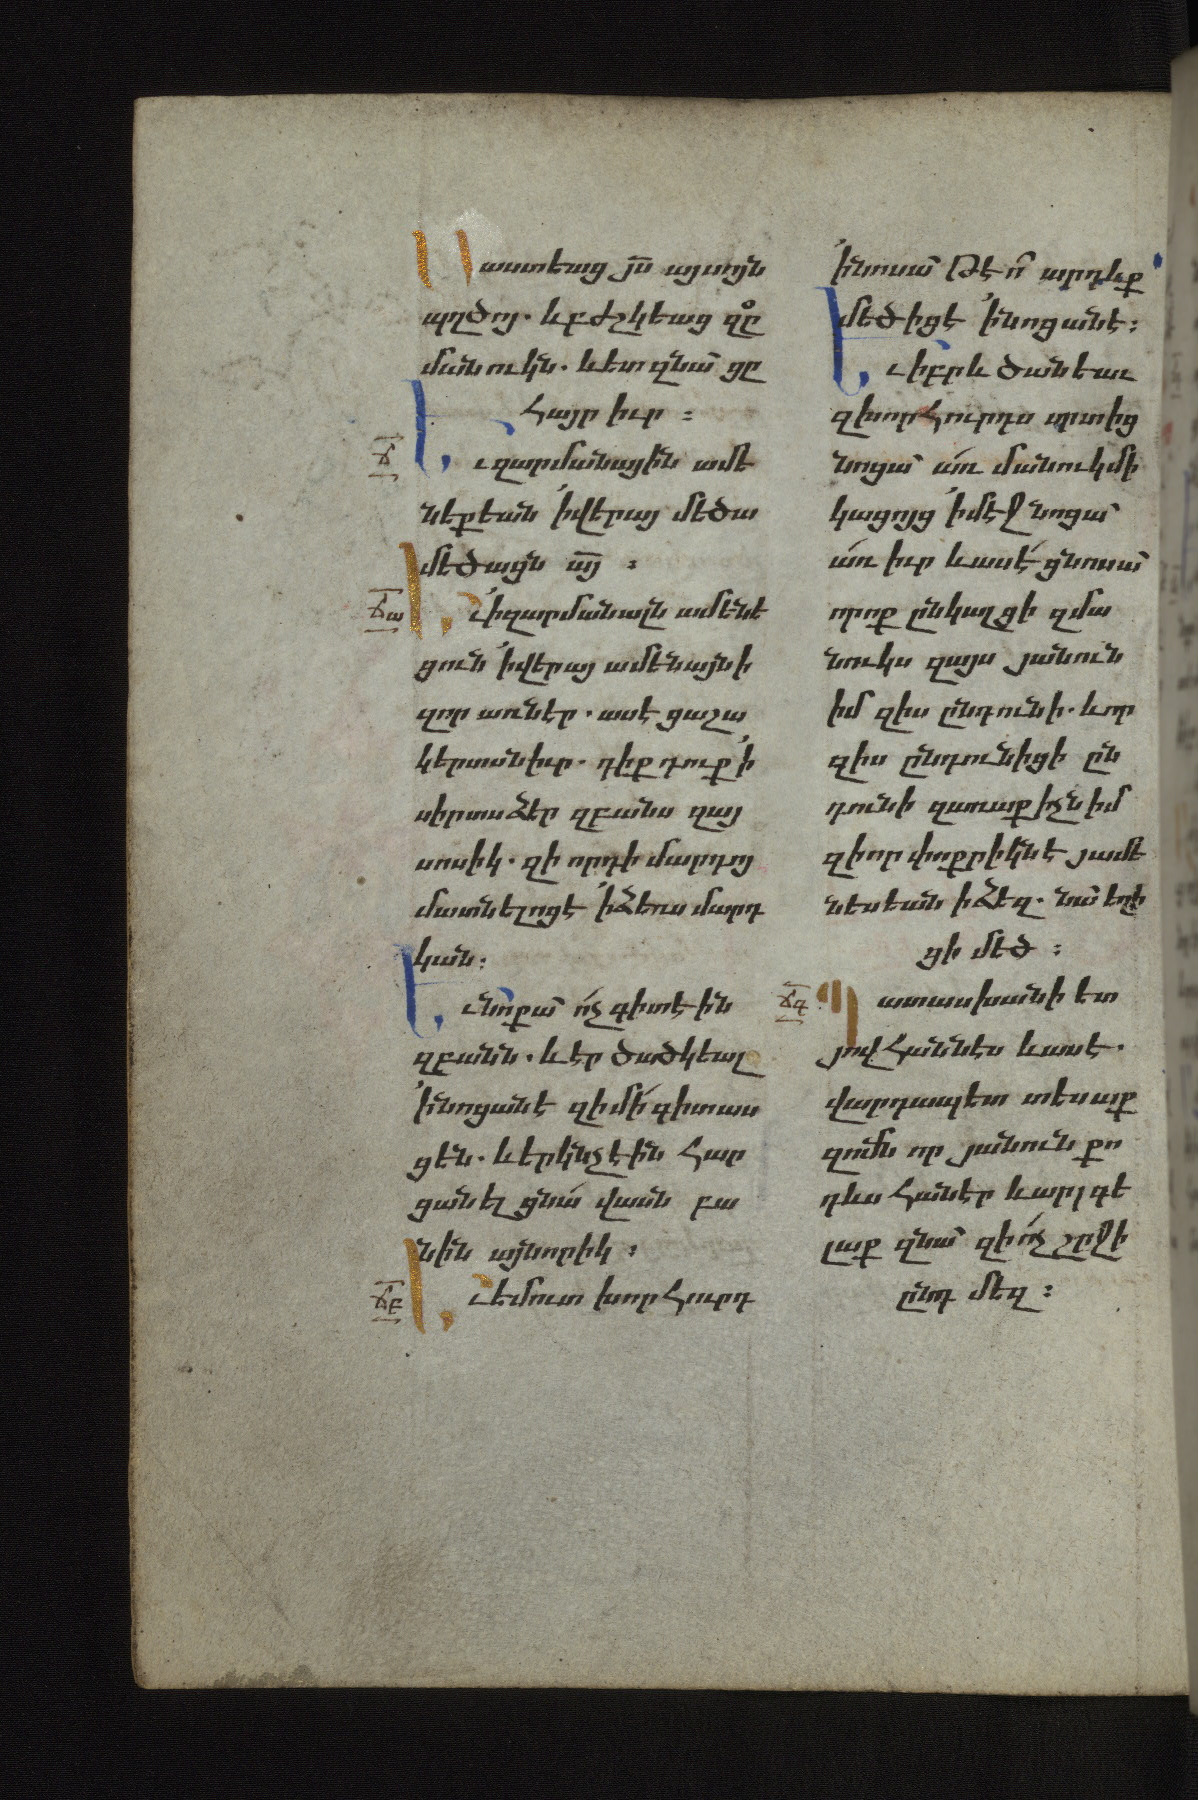 Սաստեաց յս̅ այսոյն
պղծոյ. և բժշկեաց զը
մանուկն. և ետ զնա՛ ցը
հայր իւր :
ճ
Եւ զարմանային ամե
նեքեան ՛ի վերայ մեծա
մեծացն ա̅յ :
ճա
Եւ ՛ի զարմանալն ամենե
ցուն ՛ի վերայ ամենայնի
զոր առներ. ասէ ցաշա
կերտսն իւր. դիք դուք ՛ի
սիրտս ձեր զբանս զայ
սոսիկ. զի որդի մարդոյ
մատնելոց է ՛ի ձեռս մարդ
կան:
Եւ նոքա՛ ո՛չ գիտէին
զբանն. և էր ծածկեալ
՛ի նոցանէ զի մի՛ գիտաս
ցեն. և երկնչէին հար
ցանել ցնա՛ վասն բա
նին այնորիկ :
ճբ
Եւ եմուտ խորհուրդ
՛ի նոսա՛ թէ ո՞ արդևք
մեծ իցէ ՛ի նոցանէ:
Եւ իբրև ծանեաւ
զխորհուրդս սրտից
նոցա՛ առ մանուկ մի
կացոյց ՛ի մէջ նոցա՛
առ իւր և ասէ ցնոսա՛
որոք ընկալցի զմա
նուկս զայս յանուն
իմ զիս ընդունի. և որ
զիս ընդունիցի ըն
դունի զառաքիչն իմ
զի որ փոքրիկն է յամե
նեսեան ի ձեզ. նա՛ եղի
ցի մեծ :
ճգ
Պատասխանի ետ
յովհաննէս և ասէ.
վարդապետ տեսաք
զոմն որ յանուն քո
դևս հանէր և արգե
լաք զնա՛ զի ո՛չ շրջի
ընդ մեզ :